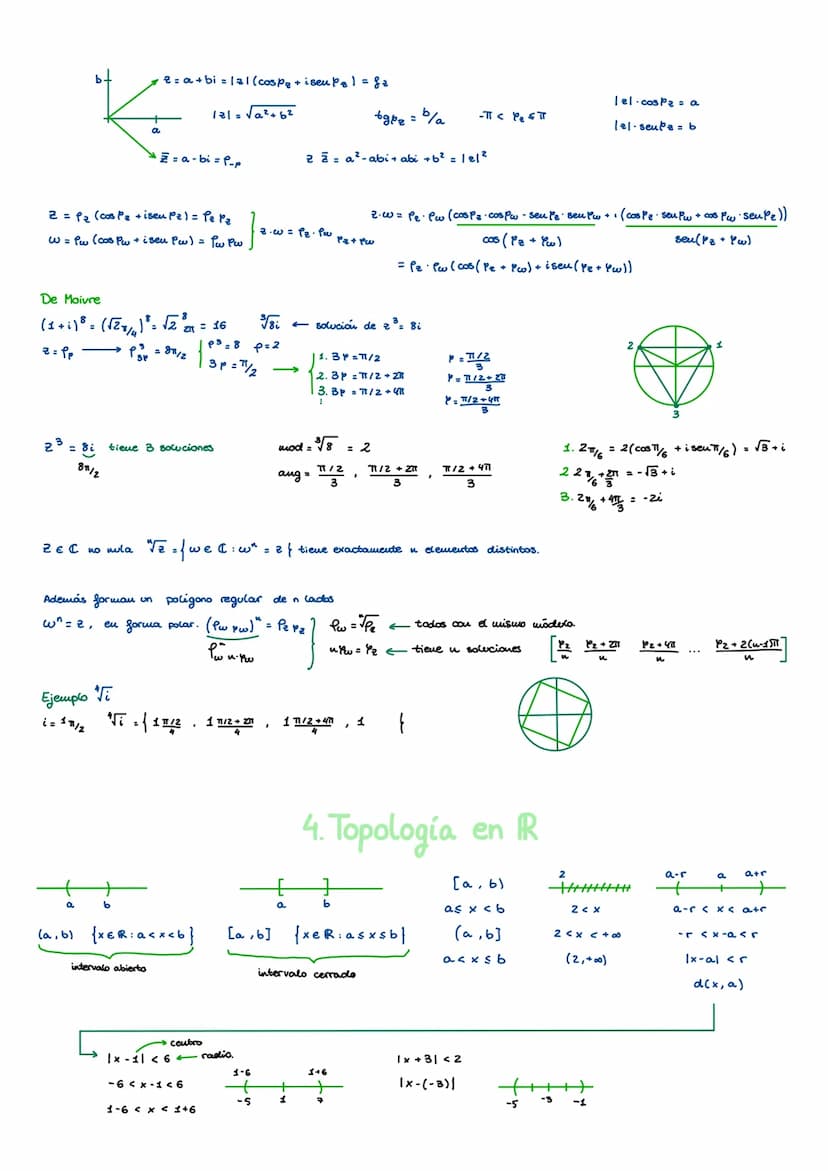 b z = a + bi = |z| (cos φz + i sen φz) = ρz
|z| = √a² + b² tg φz = b/a -π < φz ≤ π |z| · cos φz = a
a |z| · sen φz = b
z̄ = a - bi = ρ-φ z z̄ = a² - abi + abi + b² = |z|²
z = ρz (cos φz + i sen φz) = ρz φz z · ω = ρz · ρω (cos φz · cos φω - sen φz · sen φω + i (cos φz · sen φω + cos φω · sen φz))
ω = ρω (cos φω + i sen φω) = ρω φω z · ω = ρz · ρω φz + φω cos (φz + φω) sen (φz + φω)
= ρz · ρω (cos (φz + φω) + i sen (φz + φω))
De Moivre
(1+i)⁸ = (√2 π/4)⁸ = √2⁸ 2π = 16 ³√8i ← solución de z³ = 8i
z = ρφ → ρ³3φ = 8π/2 ρ³ = 8 ρ = 2
3φ = π/2 →
1. 3φ = π/2 φ = π/2 / 3
2. 3φ = π/2 + 2π φ = π/2 + 2π / 3
3. 3φ = π/2 + 4π φ = π/2 + 4π / 3
2 1
3
z³ = 8i tiene 3 soluciones mod = ³√8 = 2 1. 2π/6 = 2(cos π/6 + i sen π/6) = √3 + i
8π/2 ang = π/2 / 3 , π/2 + 2π / 3 , π/2 + 4π / 3 2 2 π/6 + 2π/3 = -√3 + i
3. 2π/6 + 4π/3 = -2i
z ∈ ℂ no nula ⁿ√z = { ω ∈ ℂ : ωⁿ = z } tiene exactamente n elementos distintos.
Además forman un polígono regular de n lados
ωⁿ = z , en forma polar. (ρω φω)ⁿ = ρz φz ρω = ⁿ√ρz ← todos con el mismo módulo.
ρωⁿ n·φω nφω = φz ← tiene n soluciones [ φz/n φz + 2π / n φz + 4π / n ... φz + 2(n-1)π / n ]
Ejemplo ⁴√i
i = 1 π/2 ⁴√i = { 1 π/2 / 4 , 1 π/2 + 2π / 4 , 1 π/2 + 4π / 4 , 1 }
4. Topología en ℝ
a b
(a, b) {x ∈ ℝ : a < x < b}
intervalo abierto
a b
[a, b] {x ∈ ℝ : a ≤ x ≤ b}
intervalo cerrado
[a, b)
a ≤ x < b
(a, b]
a < x ≤ b
2
2 < x
2 < x < +∞
(2, +∞)
a-r a a+r
a-r < x < a+r
-r < x-a < r
|x-a| < r
d(x, a)
centro
|x - 1| < 6 ← radio.
-6 < x-1 < 6
1-6 < x < 1+6
1-6 1+6
-5 1 7
|x + 3| < 2
|x - (-3)|
-5 -3 -1